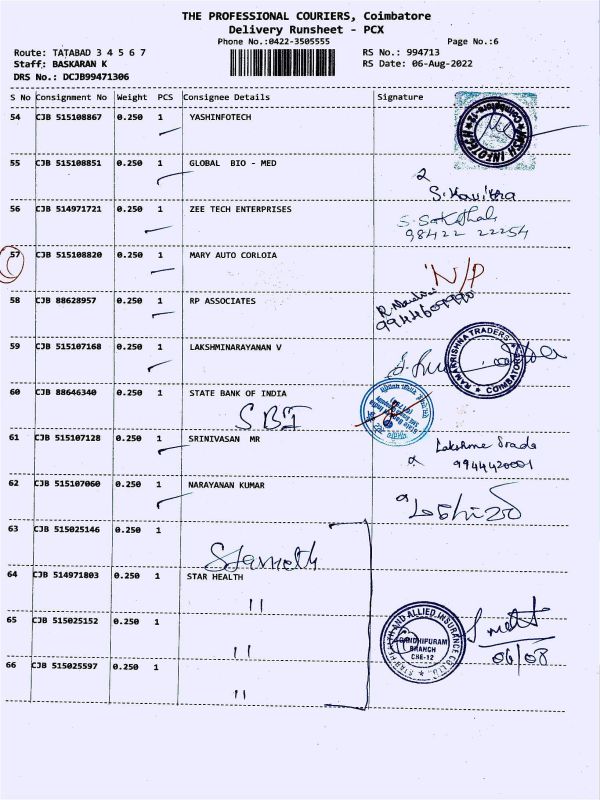 THE PROFESSIONAL COURIERS, Coimbatore
Delivery Runsheet - PCX
Phone No.:0422-3505555 Page No.:6
Route: TATABAD 3 4 5 6 7 RS No.: 994713
Staff: BASKARAN K RS Date: 06-Aug-2022
DRS No.: DCJB99471306
S No Consignment No Weight PCS Consignee Details Signature
54 CJB 515108867 0.250 1 YASHINFOTECH
55 CJB 515108851 0.250 1 GLOBAL BIO - MED
S. Kavitha
56 CJB 514971721 0.250 1 ZEE TECH ENTERPRISES
98422 22254
57 CJB 515108820 0.250 1 MARY AUTO CORLOIA
N/P
58 CJB 88628957 0.250 1 RP ASSOCIATES
59 CJB 515107168 0.250 1 LAKSHMINARAYANAN V
RAMAKRISHNA TRADERS
COIMBATORE
60 CJB 88646340 0.250 1 STATE BANK OF INDIA
SBI
61 CJB 515107128 0.250 1 SRINIVASAN MR
9944420001
62 CJB 515107060 0.250 1 NARAYANAN KUMAR
63 CJB 515025146 0.250 1
Starhealth
64 CJB 514971803 0.250 1 STAR HEALTH
"
65 CJB 515025152 0.250 1
"
STAR HEALTH AND ALLIED INSURANCE CO. LTD.
GANDHIPURAM
BRANCH
CBE-12
06/08
66 CJB 515025597 0.250 1
"